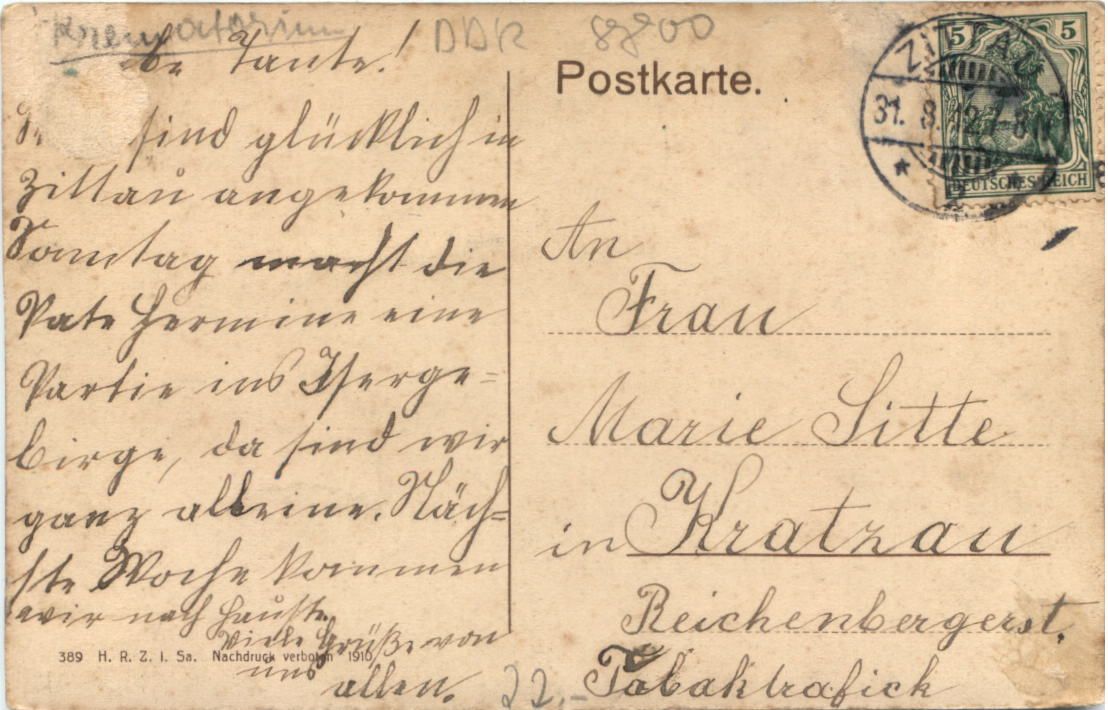 Krematorium
DDR 8800
be Tante!
sind glücklich in
Zittau angekommen
Sonntag macht die
Pate Hermine eine
Partie ins Iserge=
birge, da sind wir
ganz alleine. Näch=
ste Woche kommen
wir nach Hause.
Viele Grüße von
uns
allen.
389 H. R. Z. I. Sa. Nachdruck verboten 1910
22.-
Postkarte.
ZITTAU
31. 8. 12. 7-8 N
5 5
DEUTSCHES REICH
An
Frau
Marie Sitte
in Kratzau
Reichenbergerst.
Tabaktrafick